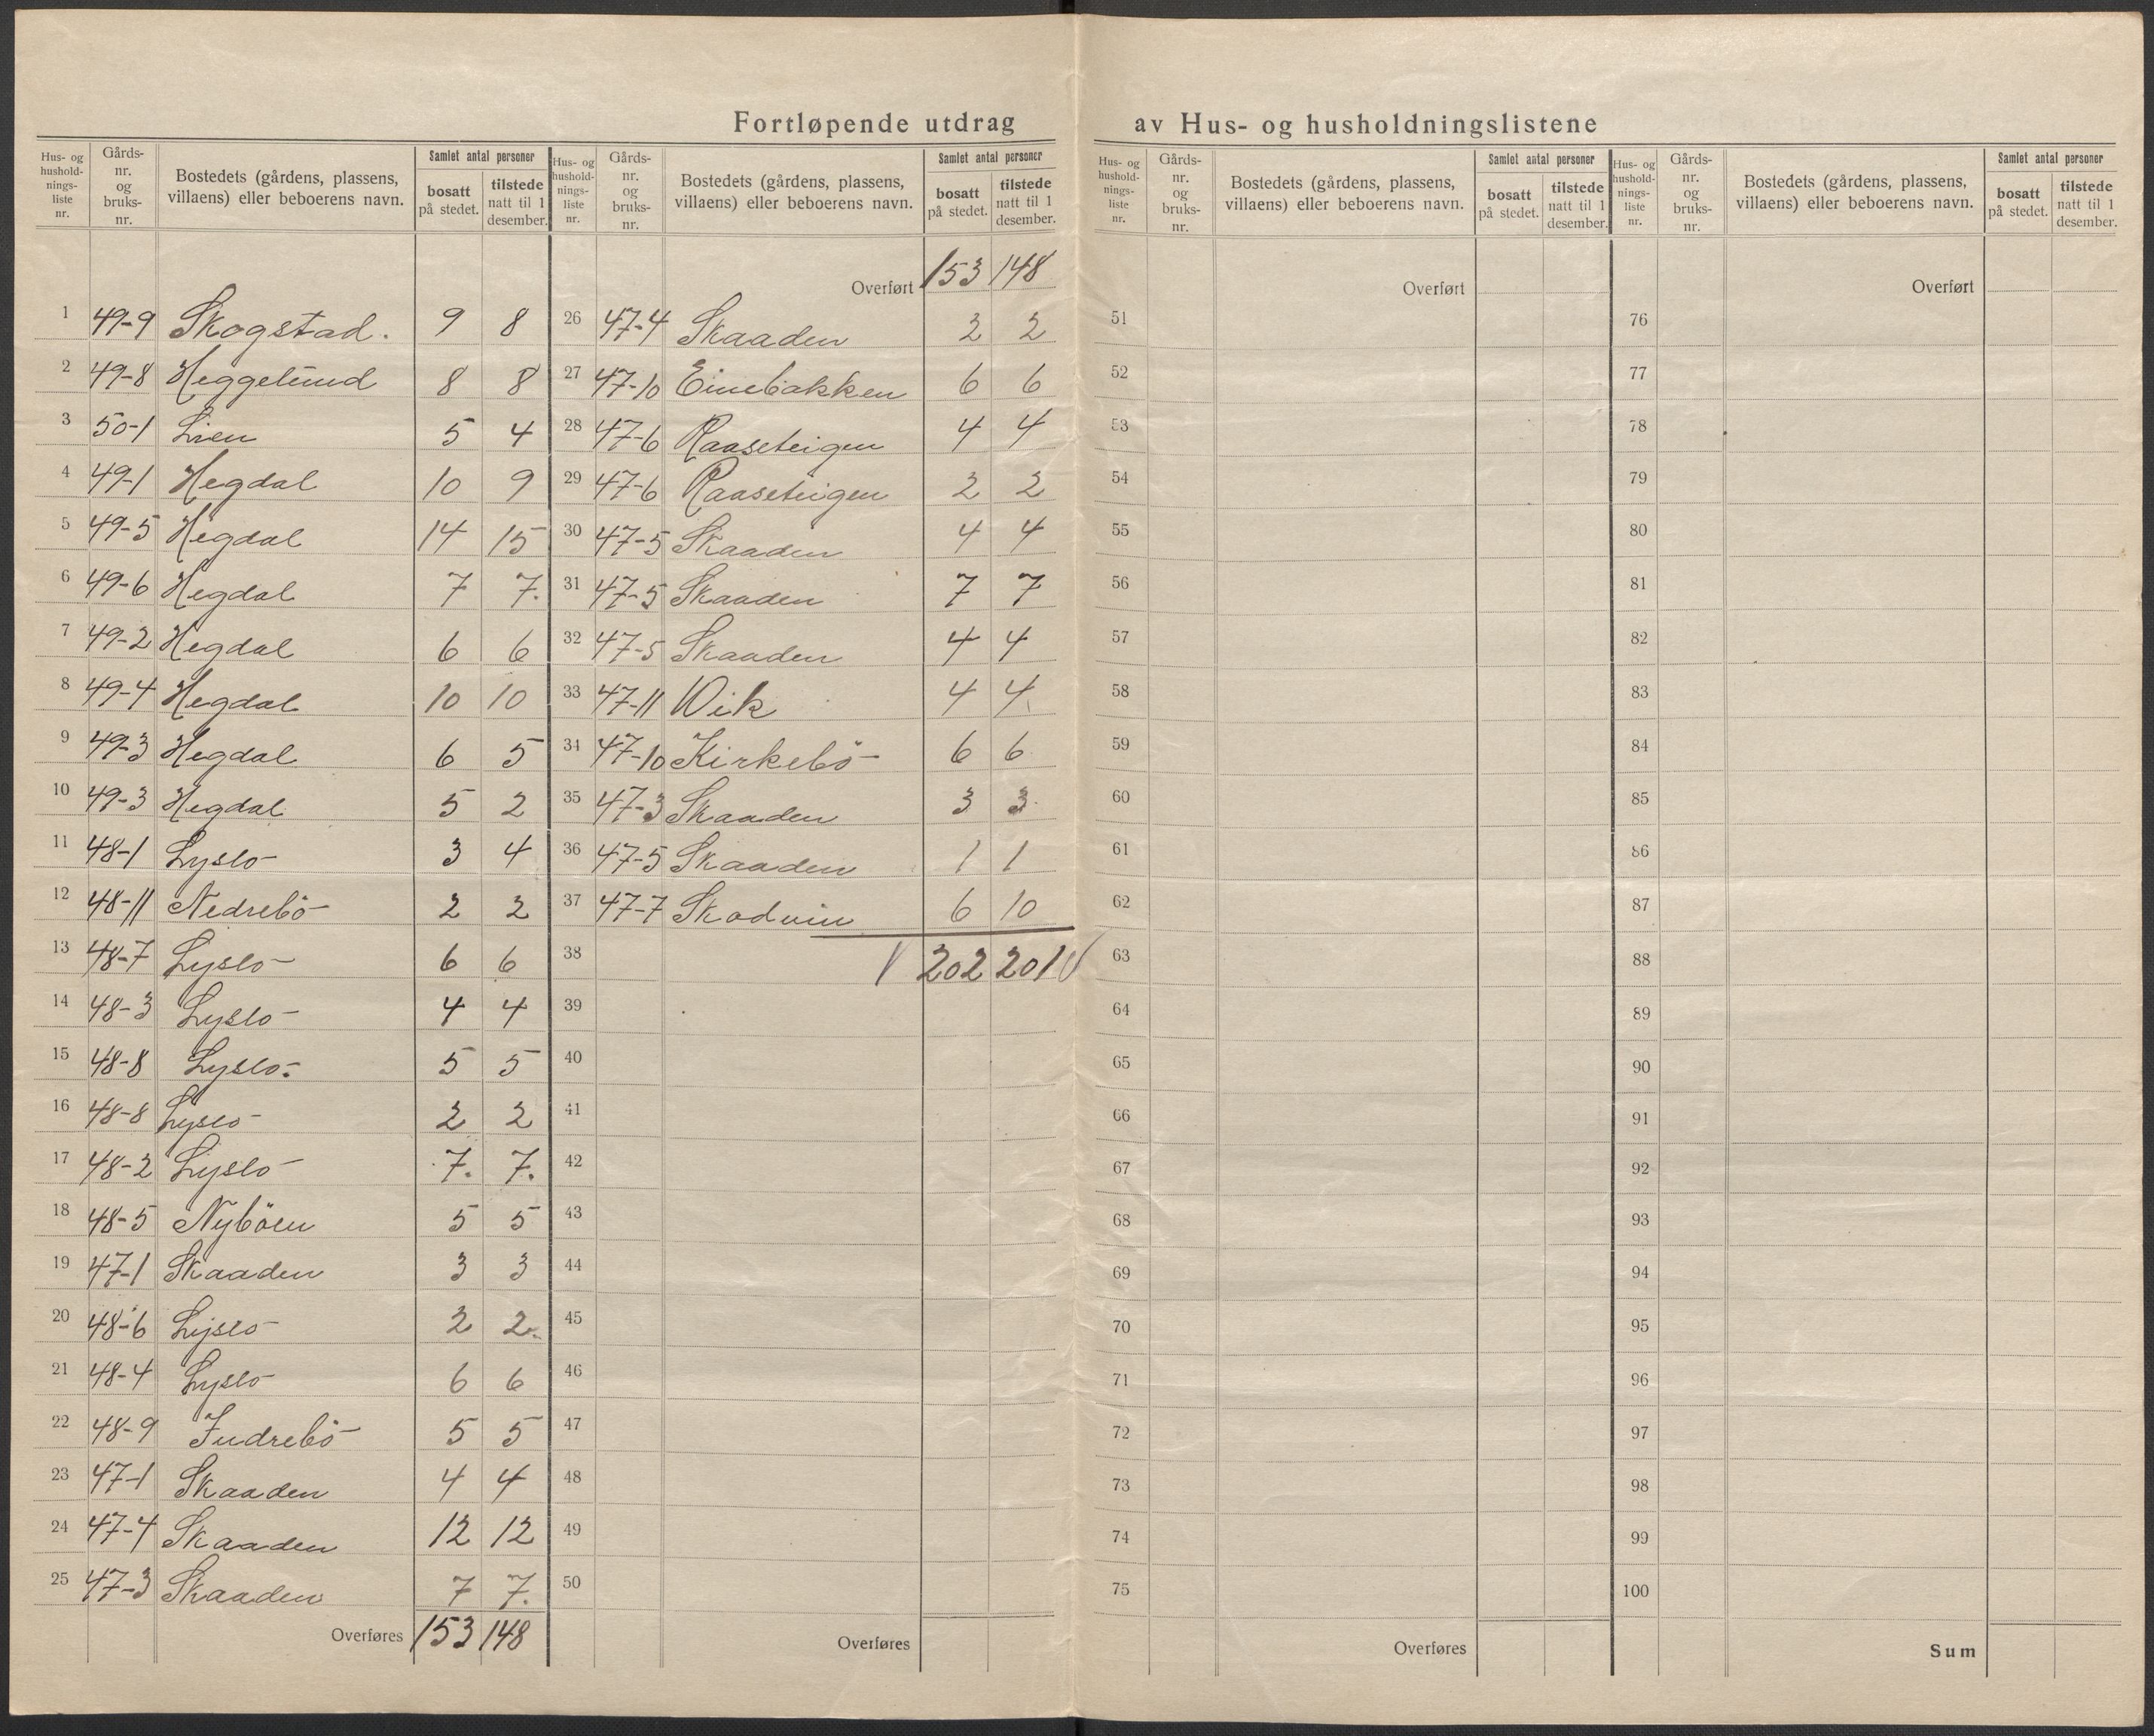 Fortløpende utdrag av Hus- og husholdningslistene
Hus- og hushold-nings-liste nr. | Gårds-nr. og bruks-nr. | Bostedets (gårdens, plassens, villaens) eller beboerens navn. | Samlet antal personer bosatt på stedet. | tilstede natt til 1 desember.
1 49-9 Skogstad. 9 8
2 49-8 Heggelund 8 8
3 50-1 Lien 5 4
4 49-1 Hegdal 10 9
5 49-5 Hegdal 14 15
6 49-6 Hegdal 7 7.
7 49-2 Hegdal 6 6
8 49-4 Hegdal 10 10
9 49-3 Hegdal 6 5
10 49-3 Hegdal 5 2
11 48-1 Lyslo 3 4
12 48-11 Nedrebö 2 2
13 48-7 Lyslo 6 6
14 48-3 Lyslo 4 4
15 48-8 Lyslo 5 5
16 48-8 Lyslo 2 2
17 48-2 Lyslo 7. 7.
18 48-5 Nyböen 5 5
19 47-1 Skaaden 3 3
20 48-6 Lyslo 2 2.
21 48-4 Lyslo 6 6
22 48-9 Indrebö 5 5
23 47-1 Skaaden 4 4
24 47-4 Skaaden 12 12
25 47-3 Skaaden 7 7.
Overføres 153 148
Hus- og hushold-nings-liste nr. | Gårds-nr. og bruks-nr. | Bostedets (gårdens, plassens, villaens) eller beboerens navn. | Samlet antal personer bosatt på stedet. | tilstede natt til 1 desember.
Overført 153 148
26 47-4 Skaaden 2 2
27 47-10 Einebakken 6 6
28 47-6 Raaseteigen 4 4
29 47-6 Raaseteigen 2 2
30 47-5 Skaaden 4 4
31 47-5 Skaaden 7 7
32 47-5 Skaaden 4 4
33 47-11 Vik 4 4
34 47-10 Kirkebö 6 6
35 47-3 Skaaden 3 3
36 47-5 Skaaden 1 1
37 47-7 Skadvin 6 10
38 202 201
39
40
41
42
43
44
45
46
47
48
49
50
Overføres
Hus- og hushold-nings-liste nr. | Gårds-nr. og bruks-nr. | Bostedets (gårdens, plassens, villaens) eller beboerens navn. | Samlet antal personer bosatt på stedet. | tilstede natt til 1 desember.
Overført
51
52
53
54
55
56
57
58
59
60
61
62
63
64
65
66
67
68
69
70
71
72
73
74
75
Overføres
Hus- og hushold-nings-liste nr. | Gårds-nr. og bruks-nr. | Bostedets (gårdens, plassens, villaens) eller beboerens navn. | Samlet antal personer bosatt på stedet. | tilstede natt til 1 desember.
Overført
76
77
78
79
80
81
82
83
84
85
86
87
88
89
90
91
92
93
94
95
96
97
98
99
100
Sum